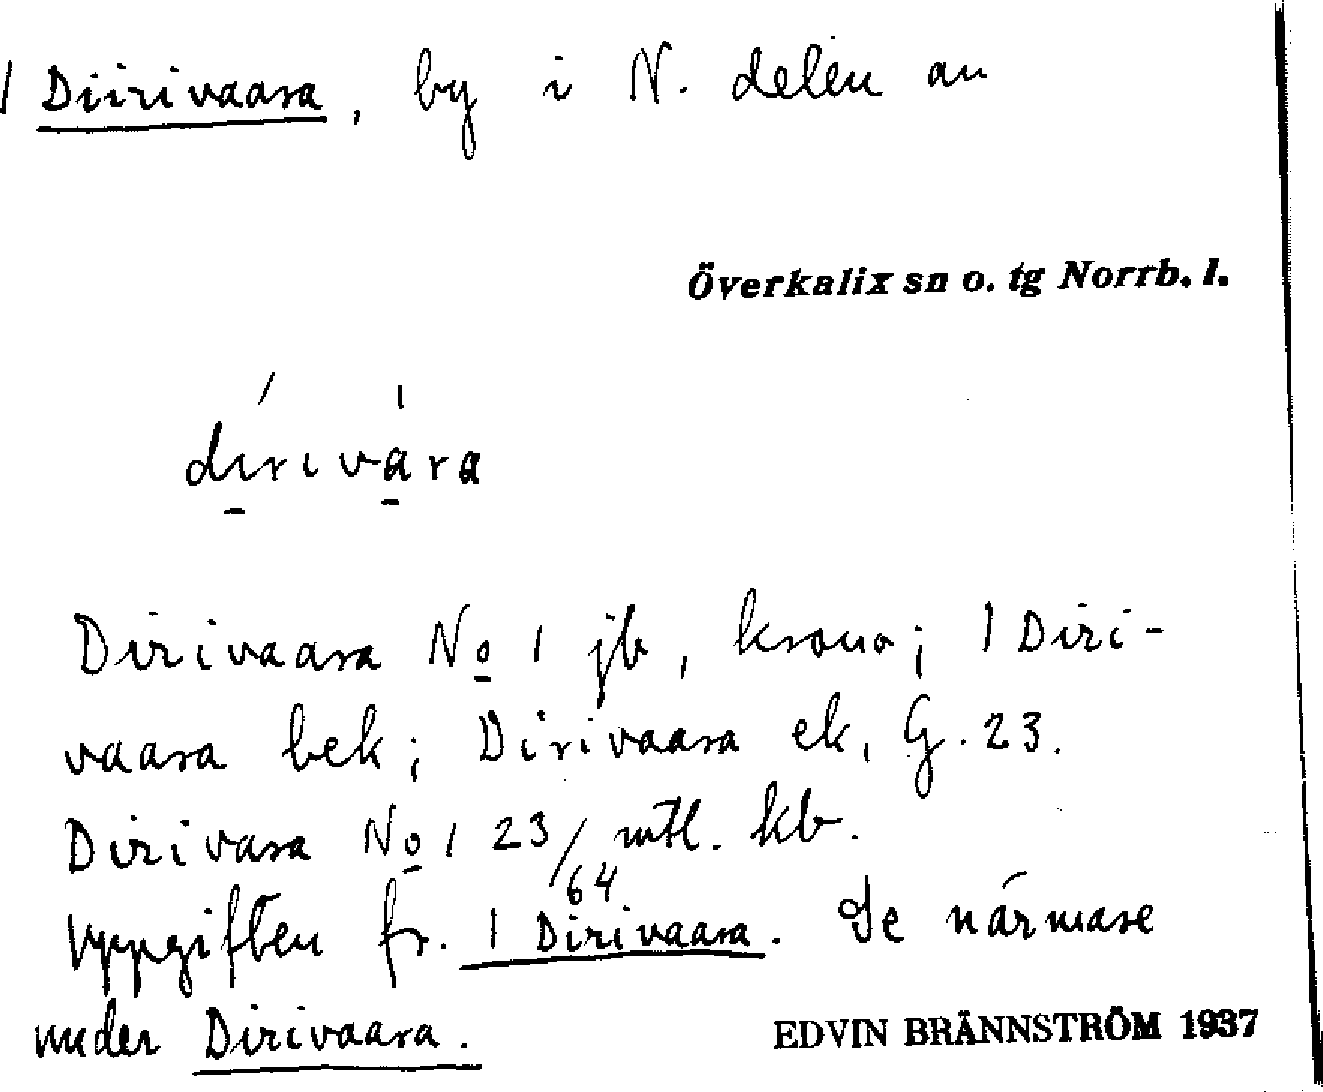 1 Diirivaara, by i N. delen av
Överkalix sn o. tg Norrb. l.
dirivára
Dirivaara No 1 jb, krono; 1 Diri-
vaara bek; Dirivaara ek, G. 23.
Dirivara No 1 23/64 mtl. kb.
Uppgiften fr. 1 Dirivaara. Se närmare
under Dirivaara.
EDVIN BRÄNNSTRÖM 1937